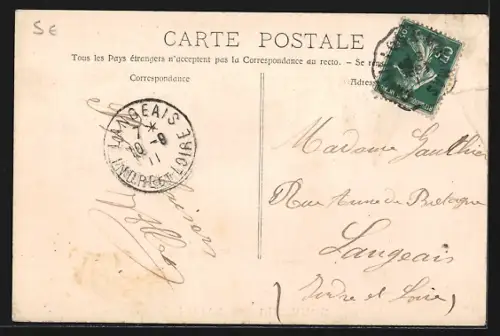 5E
CARTE POSTALE
Tous les Pays étrangers n'acceptent pas la Correspondance au recto. — Se
Correspondance
Adres
5c
LANGEAIS
* 
10 -9
11
INDRE-ET-LOIRE
Baisers
Madame Gauthier
Rue Anne de Bretagne
Langeais
(Indre et Loire)